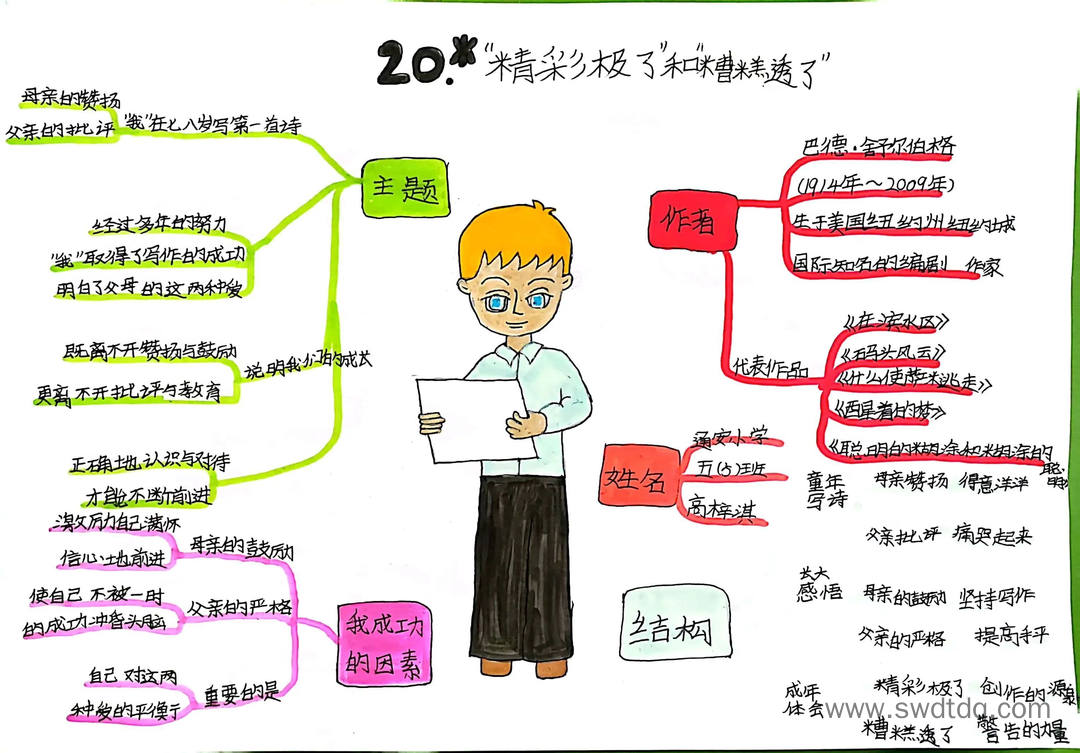 20.*“精彩极了”和“糟糕透了”
主题
母亲的赞扬
父亲的批评
“我”在七八岁写第一首诗
经过多年的努力
“我”取得了写作的成功
明白了父母的这两种爱
既离不开赞扬与鼓励
更离不开批评与教育
说明我们的成长
正确地认识与对待
才能不断前进
我成功
的因素
激励自己满怀
信心地前进
母亲的鼓励
使自己不被一时
的成功冲昏头脑
父亲的严格
自己对这两
种爱的平衡
重要的是
作者
巴德·舒尔伯格
(1914年~2009年)
生于美国纽约州纽约城
国际知名的编剧 作家
代表作品
《在滨水区》
《码头风云》
《什么使萨米逃走》
《醒着的梦》
《聪明的糊涂和糊涂的
聪明
姓名
通安小学
五(6)班
高梓淇
结构
童年
写诗
母亲赞扬 得意洋洋
父亲批评 痛哭起来
长大
感悟
母亲的鼓励 坚持写作
父亲的严格 提高水平
成年
体会
精彩极了 创作的源泉
糟糕透了 警告的力量
www.swdtdq.com